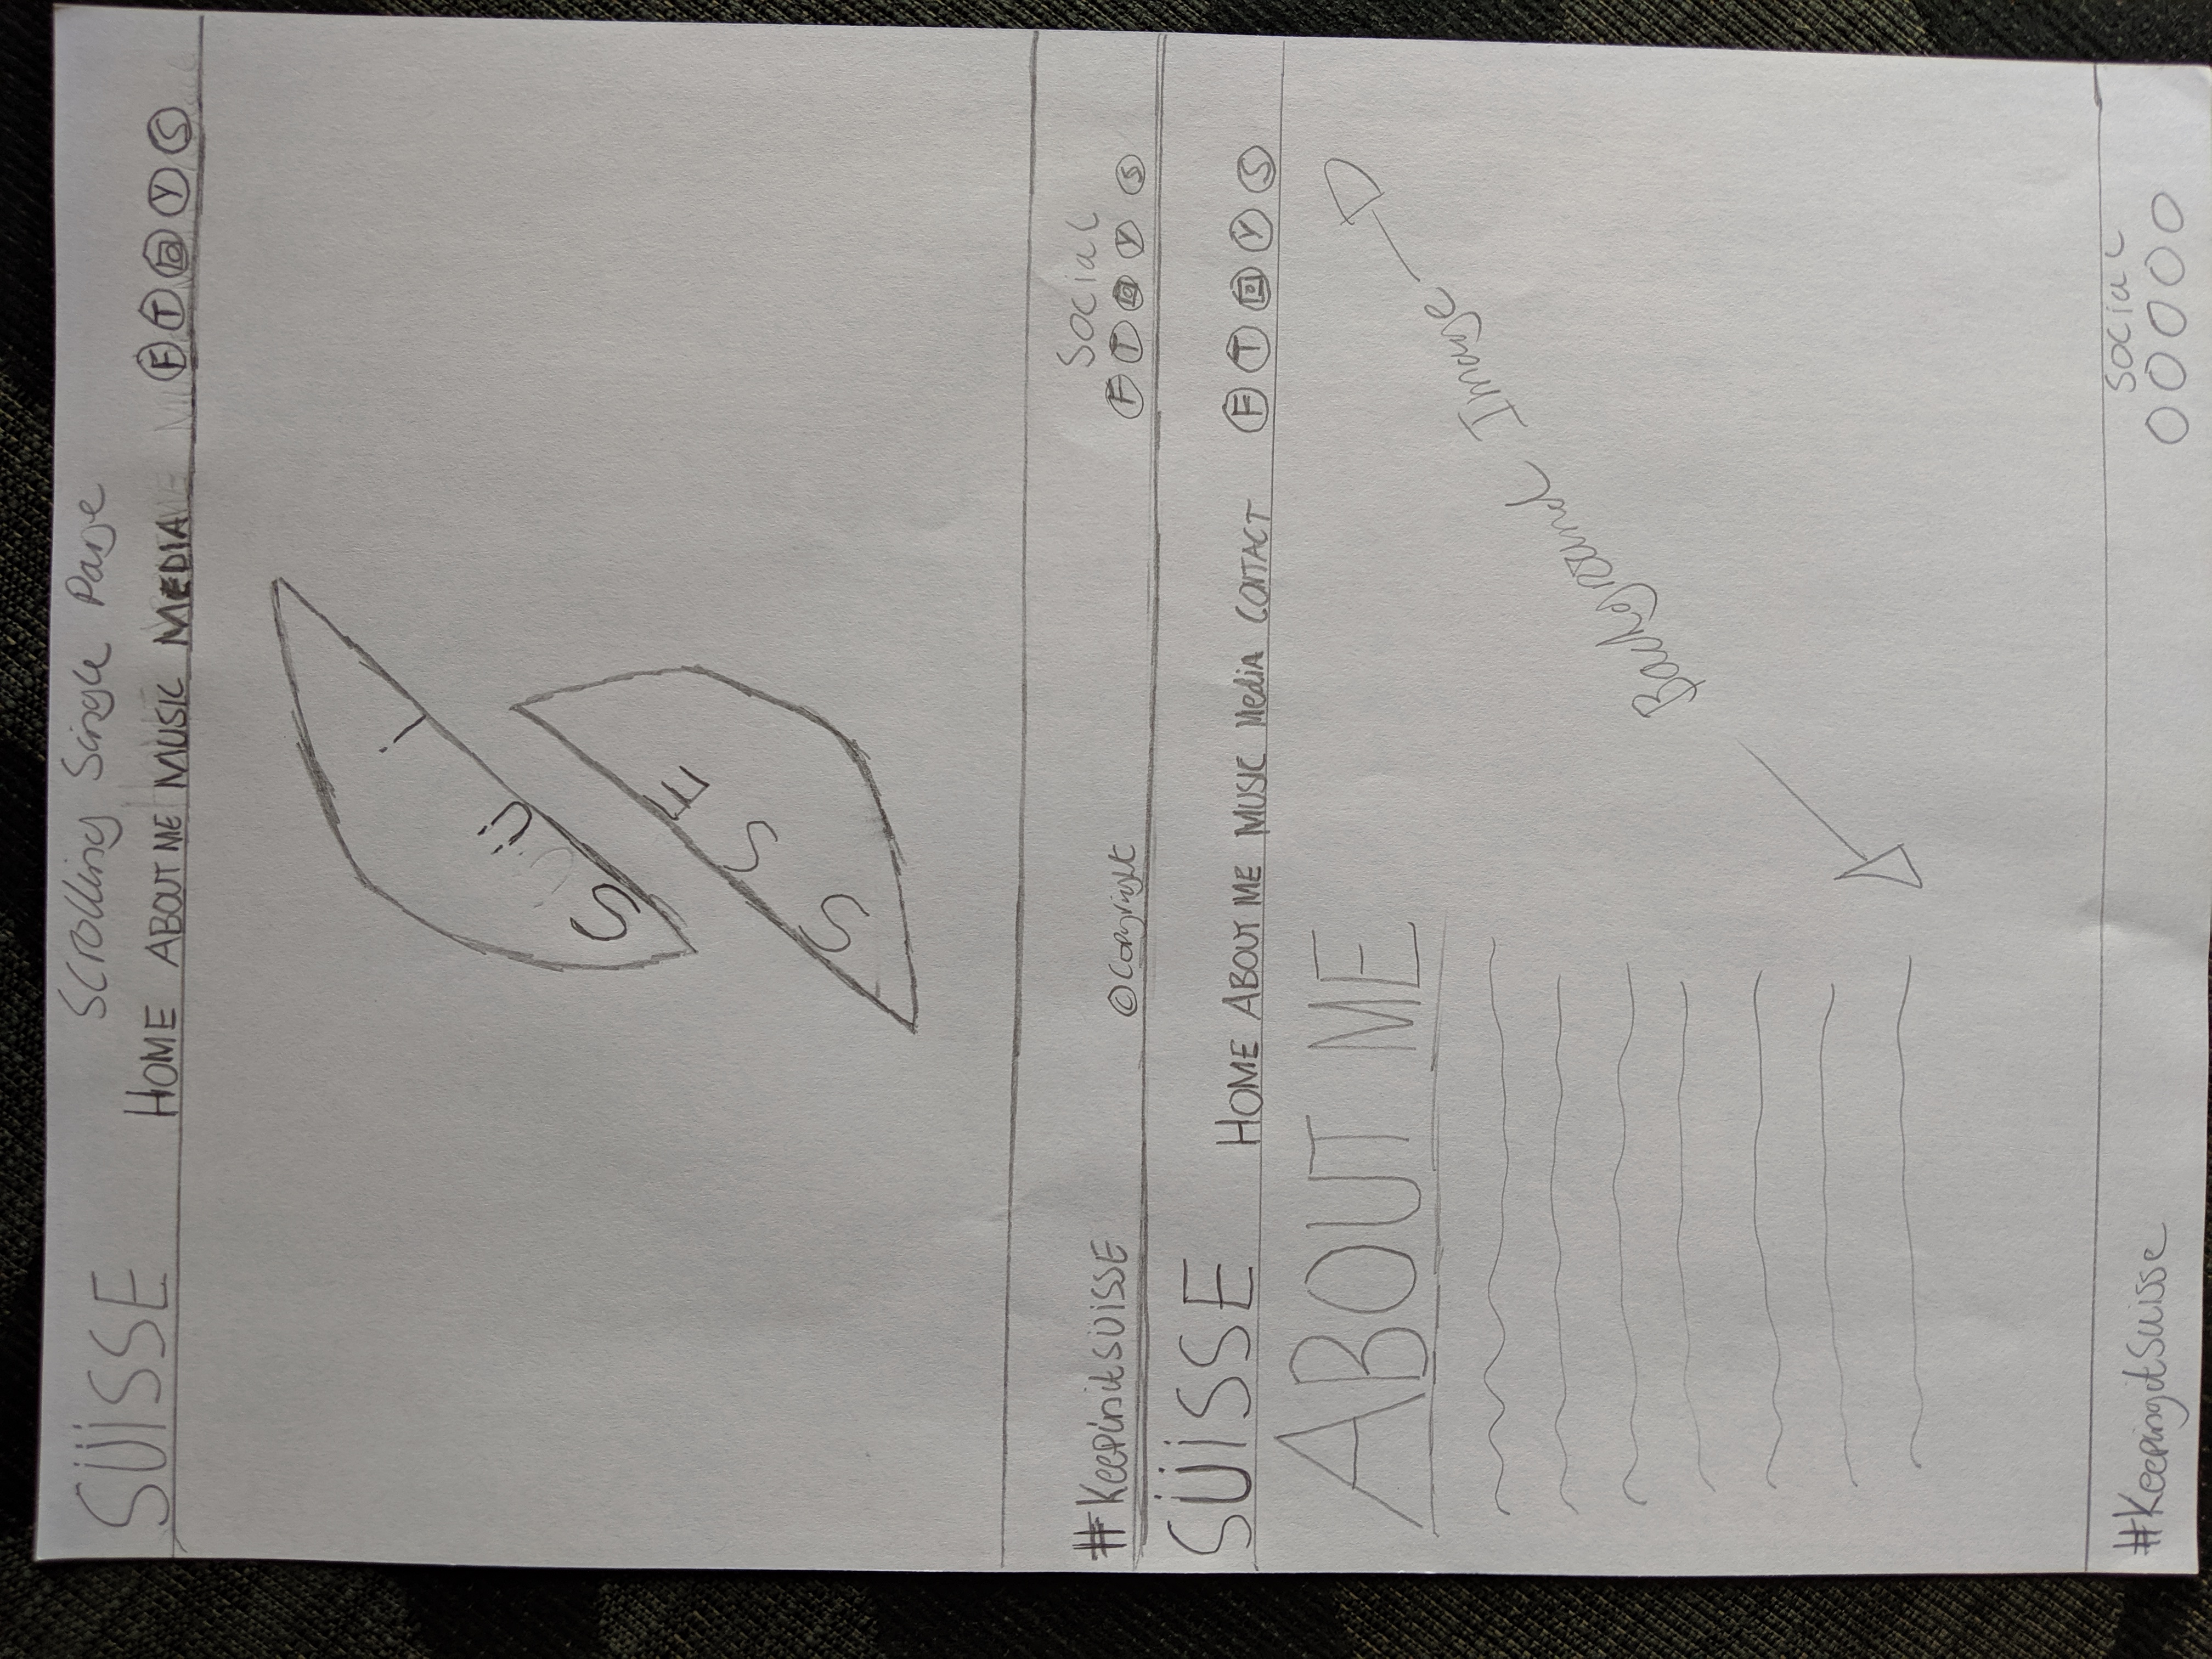 Scrolling Single Page
SÜISSE
HOME ABOUT ME MUSIC MEDIA F T Y S
S Ü i
S S E
#KeepinitSÜISSE
© Copyright
Social
F T Y S
SÜISSE
HOME ABOUT ME MUSIC Media CONTACT F T Y S
ABOUT ME
Background Image
#KeepingitSuisse
Social